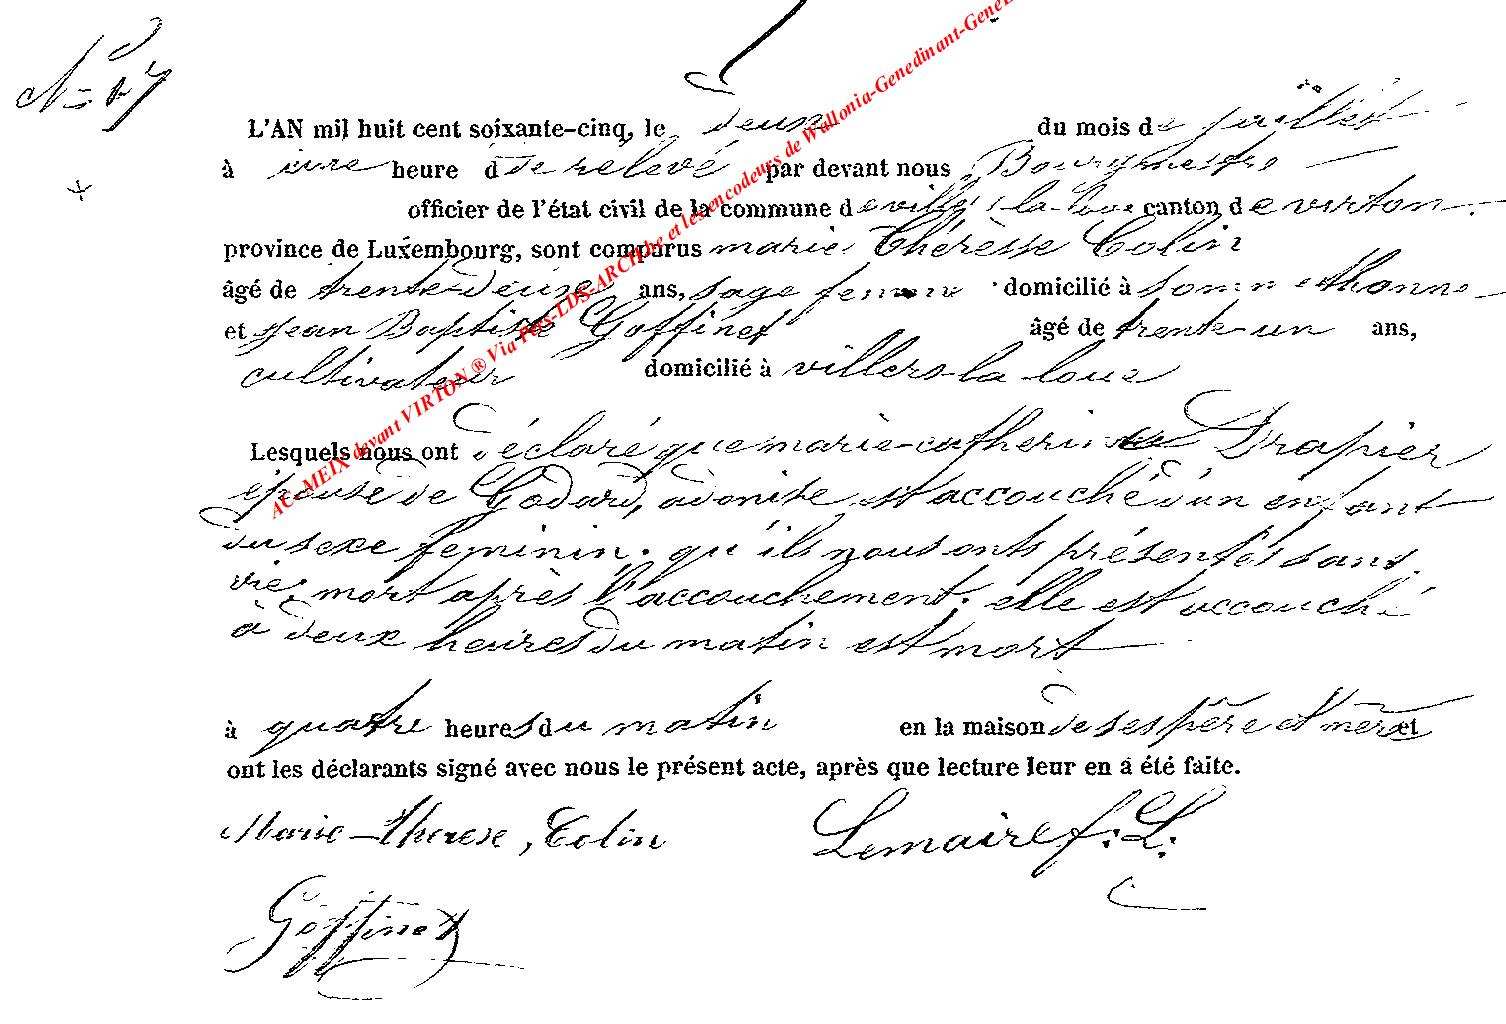 N° 17
L'AN mil huit cent soixante-cinq, le deux du mois de juillet
à une heure de relevé par devant nous Bourgmestre
officier de l'état civil de la commune de villers la-loue canton de virton
province de Luxembourg, sont comparus marie Thérèsse Colin
âgé de trente-deux ans, sage femme domicilié à sommethonne
et jean Baptiste Goffinet âgé de trente-un ans,
cultivateur domicilié à villers-la-loue
Lesquels nous ont déclaré que marie-catherine Drapier
épouse de Godard, adonise est accouché d'un enfant
du sexe feminin. qu'ils nous onts présentés sans
vie. mort après l'accouchement. elle est accouché
à deux heures du matin est mort
à quatre heures du matin en la maison de ses père et mère et
ont les déclarants signé avec nous le présent acte, après que lecture leur en a été faite.
Marie-therese, Colin Lemaire f. L.
Goffinet
AC-MEIX devant VIRTON ® Via Fars-LDS-ARCHbe et les encodeurs de Wallonia-Genedinant-Gene